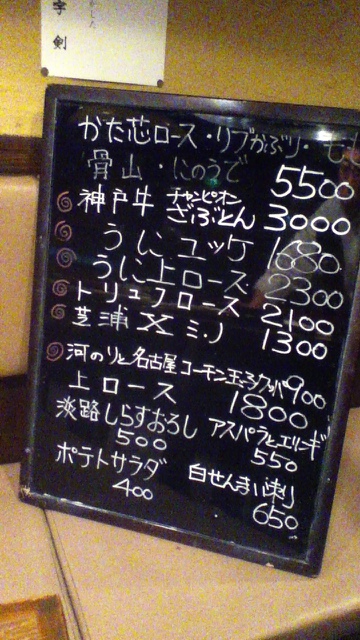 宇
剣
かた芯ロース・リブかぶり・
骨山・にのうで
5500
神戸牛 チャンピオン
ざぶとん 3000
うにユッケ 1680
うに上ロース 2300
トリュフロース 2100
芝浦 X ミノ 1300
河のりと名古屋コーチン玉子クッパ 900
上ロース 1800
淡路しらすおろし
500
アスパラとエリンギ
550
ポテトサラダ
400
白せんまい刺り
650